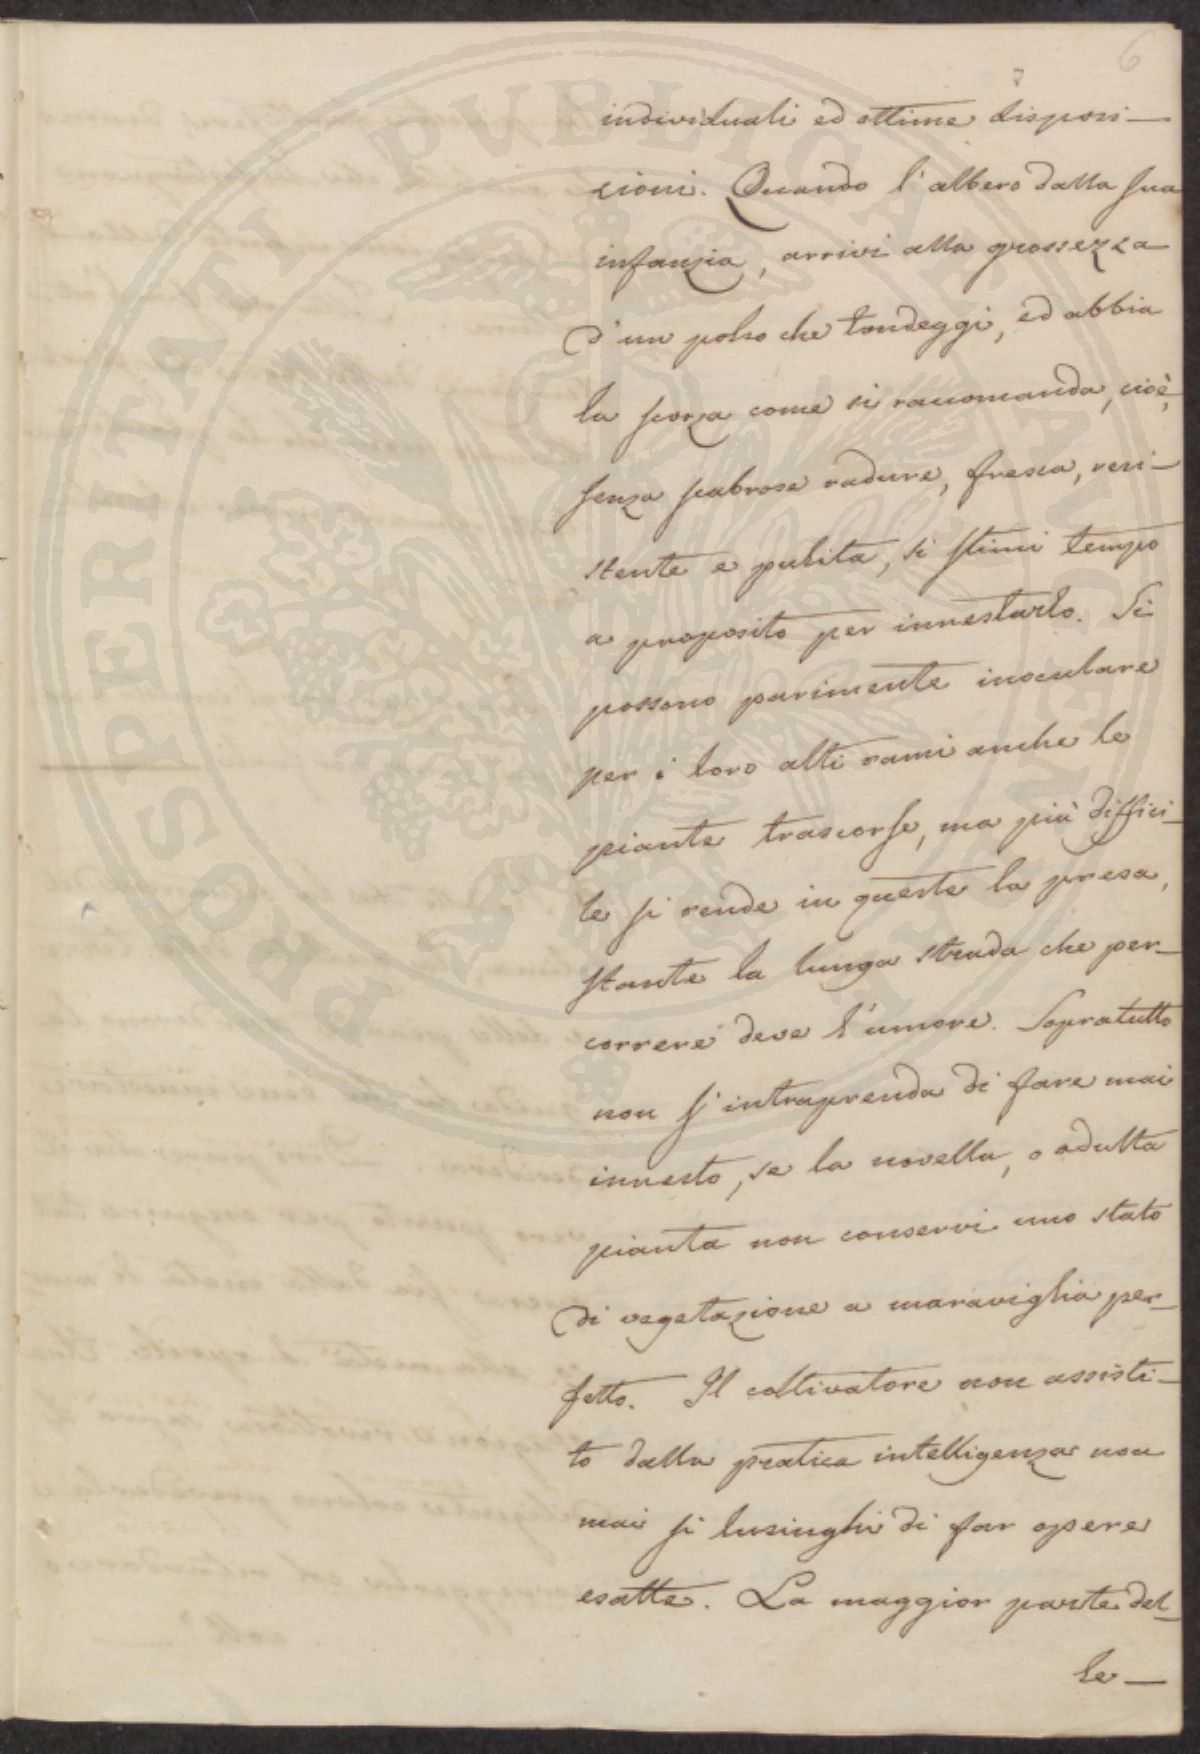 6
individuali ed ottime disposi-
zioni. Quando l'albero dalla sua
infanzia, arrivi alla grossezza
d'un polso che tondeggi, ed abbia
la scorza come si raccomanda, cioè,
senza scabrose radure, fresca, resi-
stente e pulita, si stimi tempo
a proposito per innestarlo. Si
possono parimente inoculare
per i loro alti rami anche le
piante trascorse, ma più diffici-
le si rende in queste la presa,
stante la lunga strada che per-
correre deve l'umore. Sopratutto
non s'intraprenda di fare mai
innesto, se la novella, o adulta
pianta non conservi uno stato
di vegetazione a maraviglia per-
fetto. Il coltivatore non assisti-
to dalla pratica intelligenza non
mai si lusinghi di far opere
esatte. La maggior parte del-
le-
PROSPERITATI PVBLICAE AVGENDAE